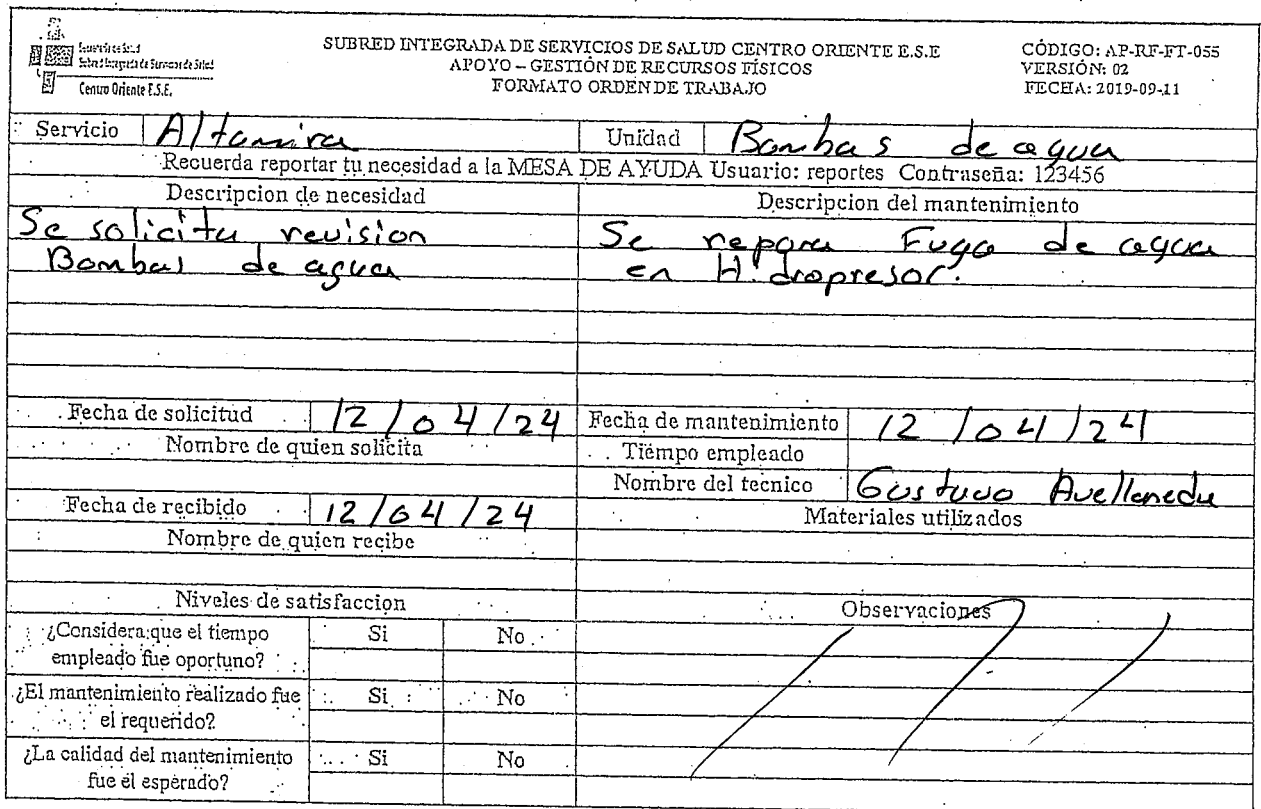 Centro Oriente E.S.E.
SUBRED INTEGRADA DE SERVICIOS DE SALUD CENTRO ORIENTE E.S.E
APOYO – GESTIÓN DE RECURSOS FÍSICOS
FORMATO ORDEN DE TRABAJO
CÓDIGO: AP-RF-FT-055
VERSIÓN: 02
FECHA: 2019-09-11
Servicio Altamira Unidad Bombas de agua
Recuerda reportar tu necesidad a la MESA DE AYUDA Usuario: reportes Contraseña: 123456
Descripcion de necesidad
Se solicita revision
Bombas de agua
Descripcion del mantenimiento
Se repara Fuga de agua
en Hidropresor.
Fecha de solicitud 12/04/24
Nombre de quien solicita
Fecha de recibido 12/04/24
Nombre de quien recibe
Fecha de mantenimiento 12/04/24
Tiempo empleado
Nombre del tecnico Gustavo Avellaneda
Materiales utilizados
Niveles de satisfaccion
¿Considera que el tiempo Si No
empleado fue oportuno?
¿El mantenimiento realizado fue Si No
el requerido?
¿La calidad del mantenimiento Si No
fue el esperado?
Observaciones